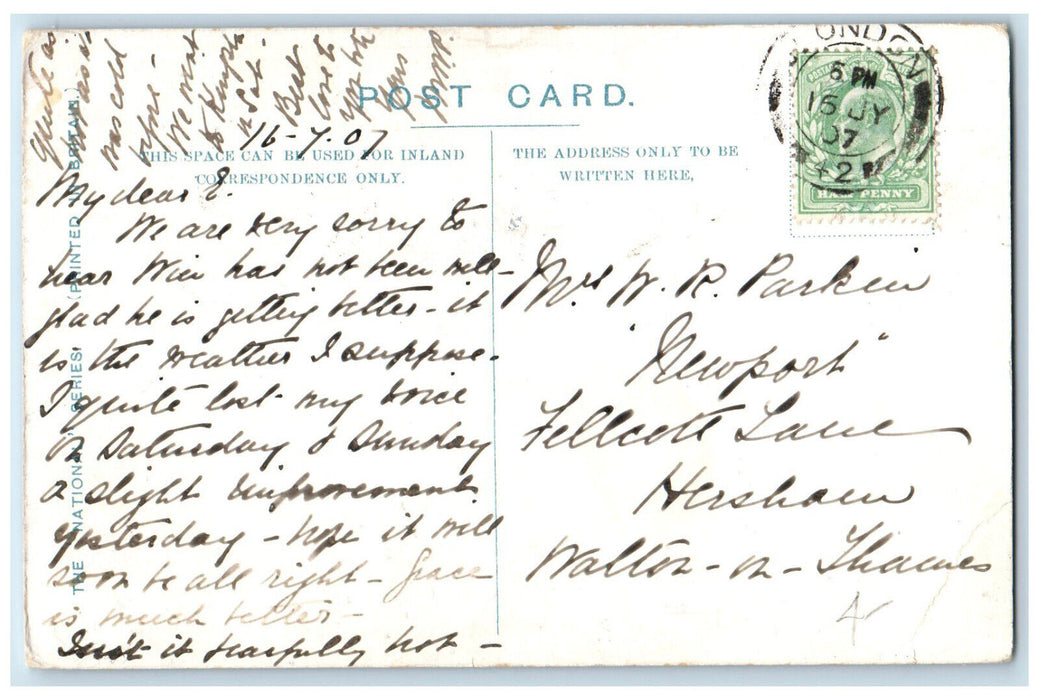 POST CARD.
THIS SPACE CAN BE USED FOR INLAND
CORRESPONDENCE ONLY.
THE ADDRESS ONLY TO BE
WRITTEN HERE,
THE "NATIONAL" SERIES. (PRINTED IN BRITAIN.)
16-7.07
My dear E.
We are very sorry to
hear Win has not been well-
glad he is getting better - it
is the weather I suppose.
I quite lost my voice
on Saturday & Sunday
a slight improvement
yesterday - hope it will
soon be all right - Grace
is much better -
Isn't it fearfully hot -
Quite as
as it
was cold
before -
We went
to
Sat.
Best
love to
you both
from
LONDON
6 PM
16 JY
07
42
HALF PENNY
Mrs W. R. Parkin
"Newport"
Fellcott Lane
Hersham
Walton-on-Thames